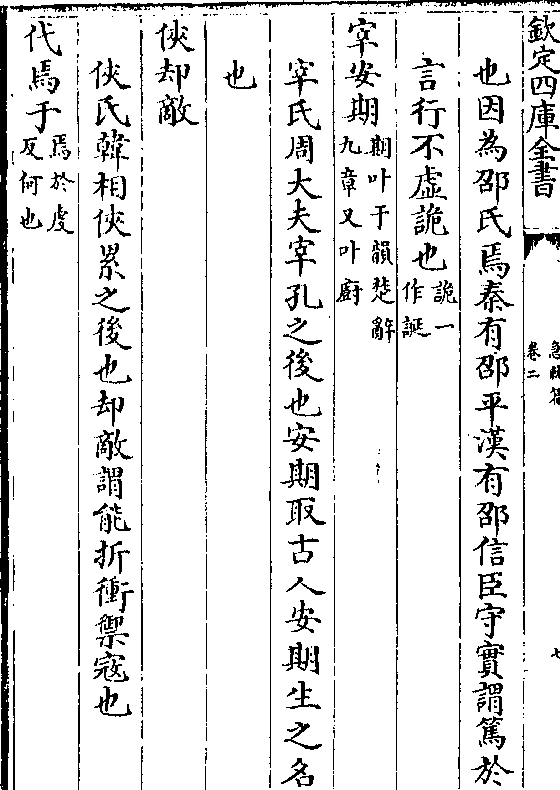 欽定四庫全書
急就篇
卷二
七
也因為邵氏焉秦有邵平漢有邵信臣守實謂篤於
言行不虛詭也詭一作誕
宰安期期叶于韻楚辭九章又叶廚
宰氏周大夫宰孔之後也安期取古人安期生之名
也
俠却敵
俠氏韓相俠累之後也却敵謂能折衝禦寇也
代焉于焉於虔反何也